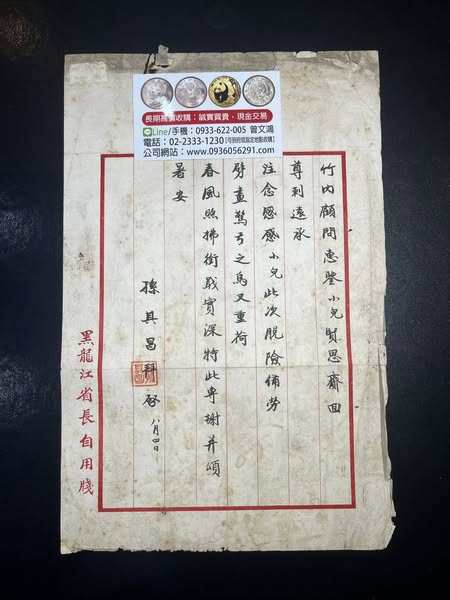 長期高價收購：誠實買賣，現金交易
Line/手機：0933-622-005 曾文鴻
電話：02-2333-1230【可到府或指定地點收購】
公司網站：www.0936056291.com
竹內顧問惠鑒小兒賢思齋回
尊刺遠承
注念感感小兒此次脫險備勞
劈畫驚弓之鳥又重荷
春風煦拂銜戢實深特此專謝并頌
署安
孫其昌拜啓
八月四日
黑龍江省長自用牋